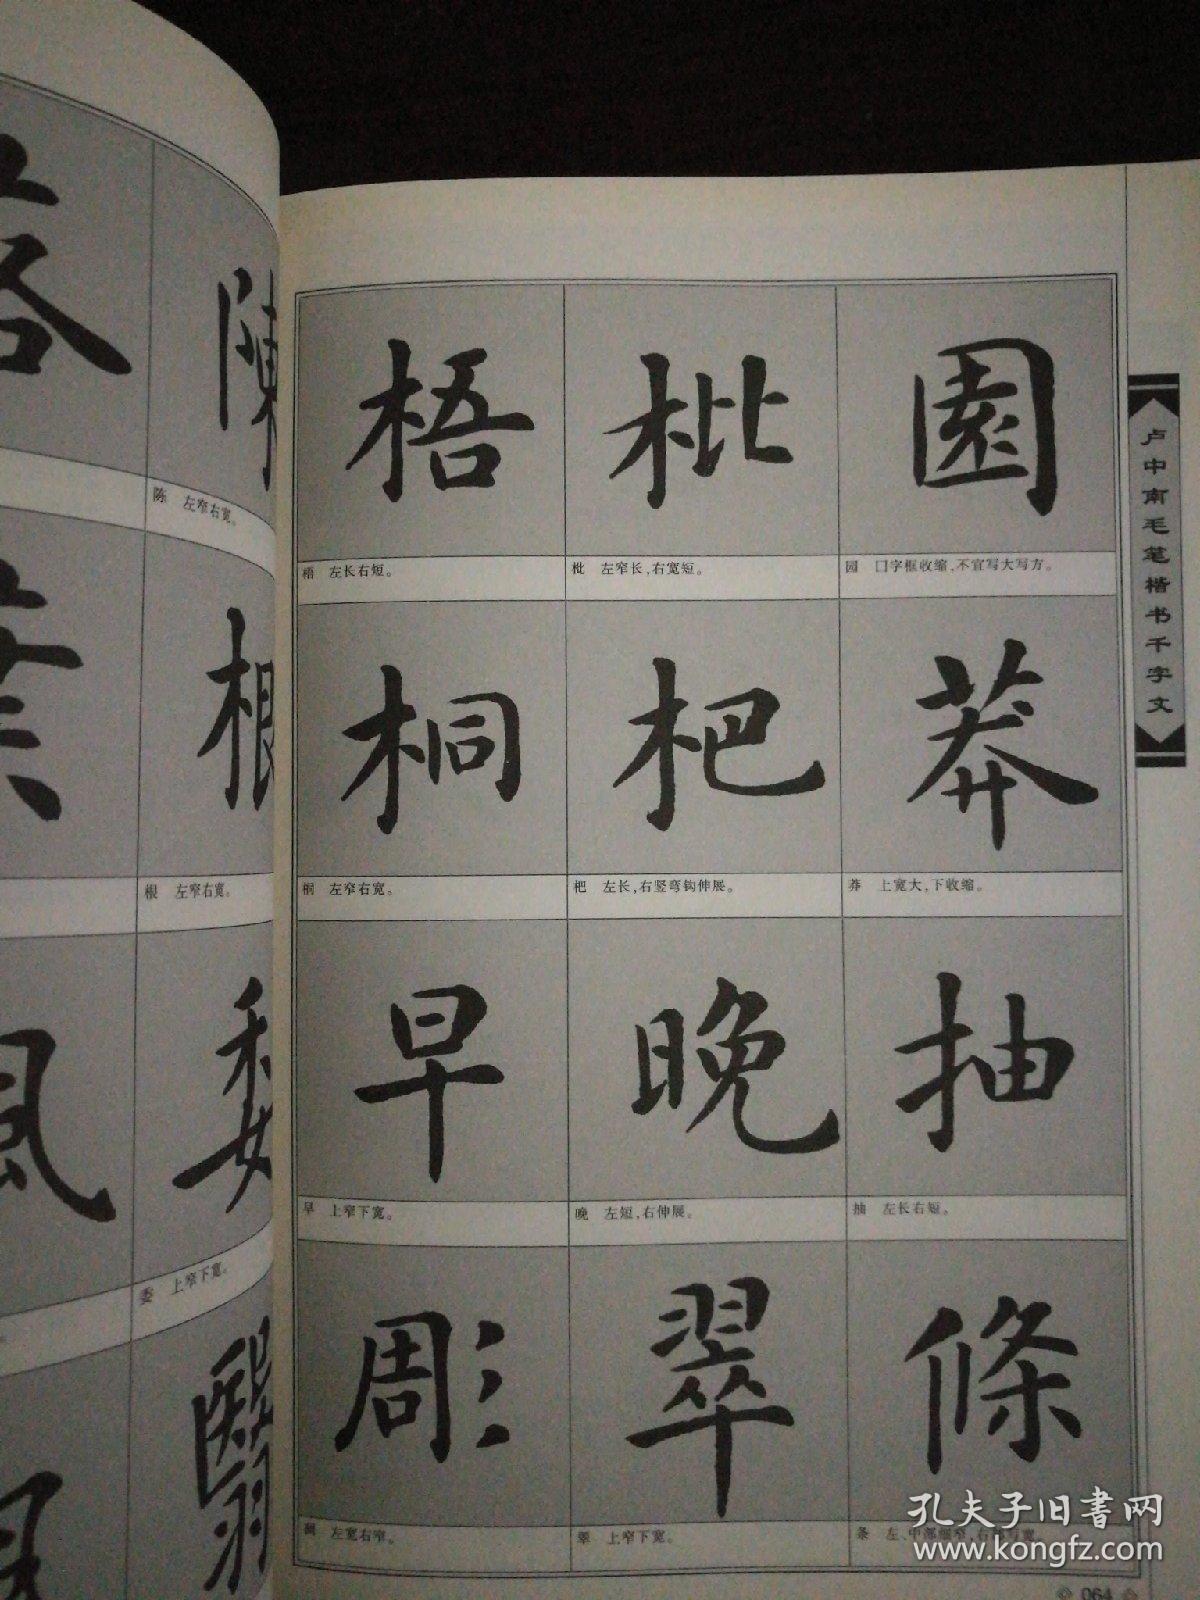 落
陳
陈　左窄右宽。
葉
根
根　左窄右宽。
委
委　上窄下宽。
翳
梧
枇
園
梧　左长右短。
枇　左窄长，右宽短。
园　囗字框收缩，不宜写大写方。
桐
杷
莽
桐　左窄右宽。
杷　左长，右竖弯钩伸展。
莽　上宽大，下收缩。
早
晚
抽
早　上窄下宽。
晚　左短，右伸展。
抽　左长右短。
彫
翠
條
左宽右窄。
翠　上窄下宽。
条　左、中部细窄，右部写宽。
卢中南毛笔楷书千字文
064
孔夫子旧书网
www.kongfz.com